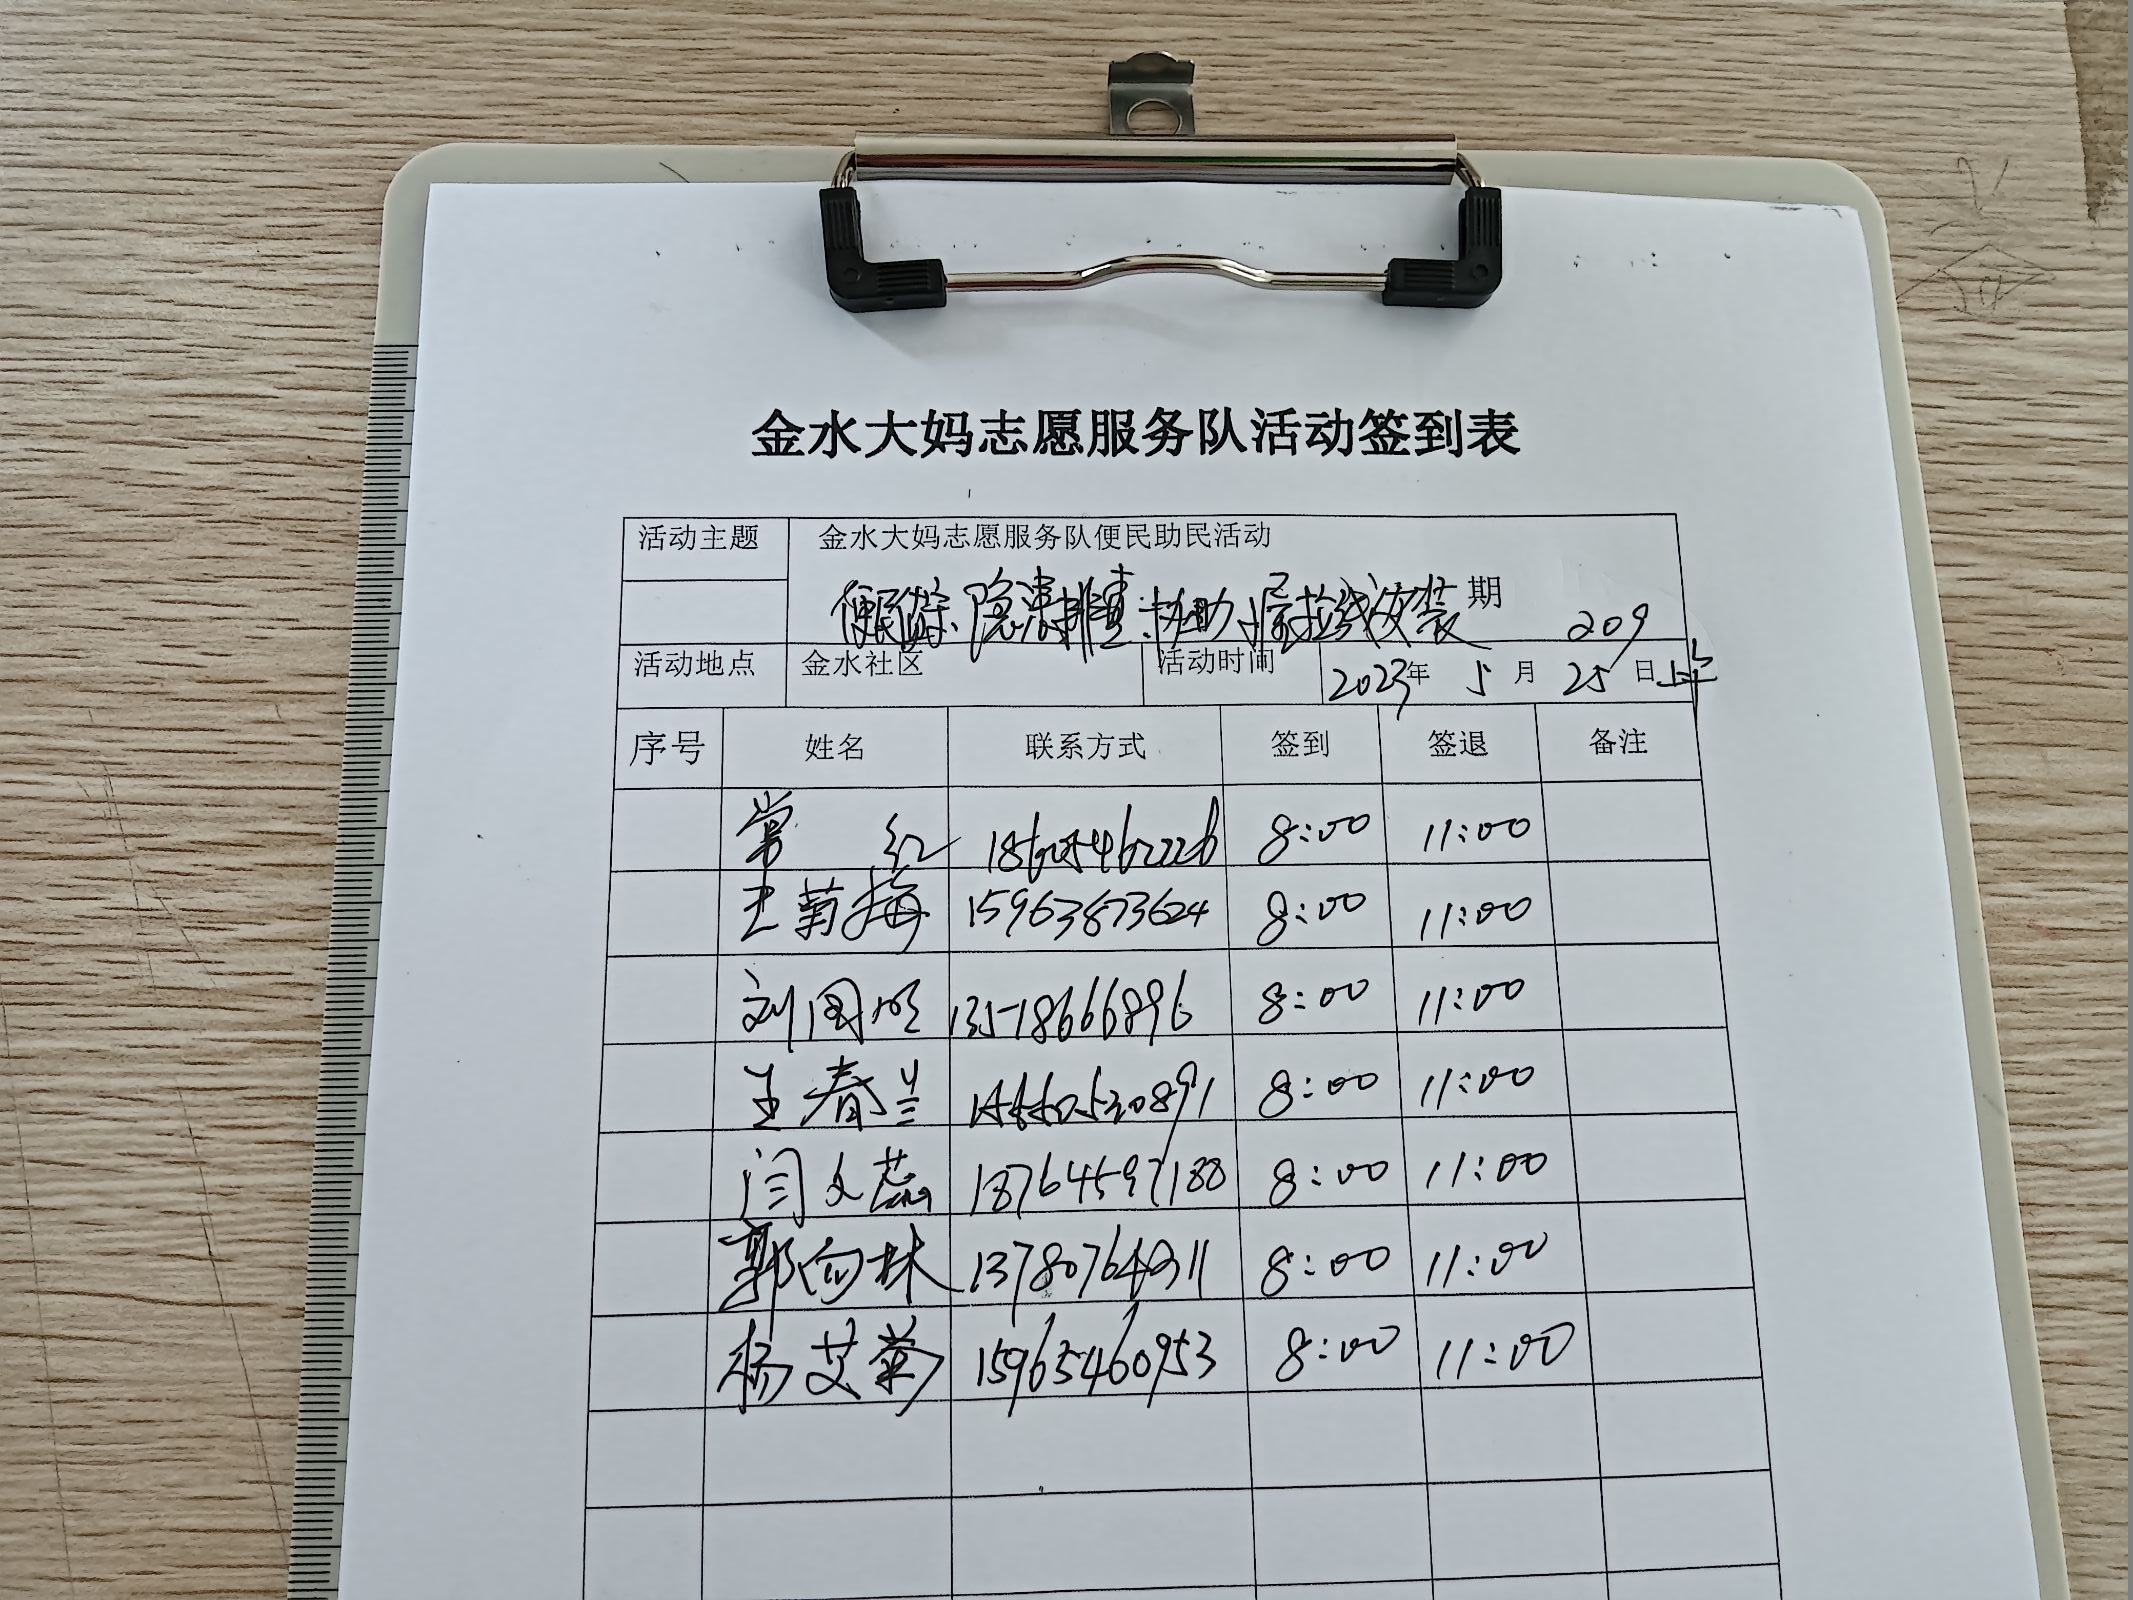 金水大妈志愿服务队活动签到表
活动主题 金水大妈志愿服务队便民助民活动
隐患排查 协助 拉线安装 期 209
活动地点 金水社区 活动时间 2023年 5月 25日 上午
序号 姓名 联系方式 签到 签退 备注
常 红 18605462226 8:00 11:00
王菊梅 15963873624 8:00 11:00
刘国明 8:00 11:00
王春兰 8:00 11:00
闫文蕊 18764597188 8:00 11:00
郭向林 8:00 11:00
杨艾菊 15965460953 8:00 11:00